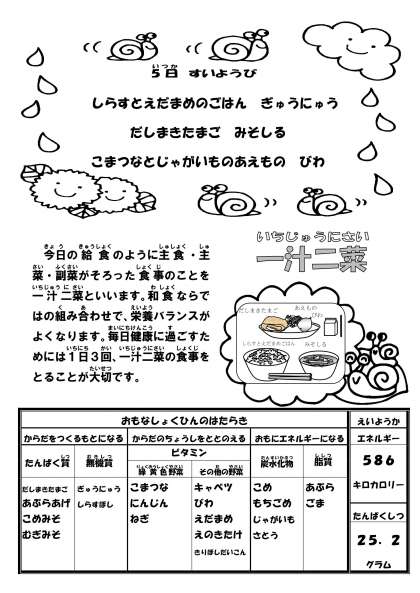 5日 すいようび
しらすとえだまめのごはん ぎゅうにゅう
だしまきたまご みそしる
こまつなとじゃがいものあえもの びわ
今日の給食のように主食・主
菜・副菜がそろった食事のことを
一汁二菜といいます。和食ならで
はの組み合わせで、栄養バランスが
よくなります。毎日健康に過ごすた
めには1日3回、一汁二菜の食事を
とることが大切です。
いちじゅうにさい
一汁二菜
だしまきたまご
あえもの
びわ
しらすとえだまめごはん
みそしる
おもなしょくひんのはたらき
えいようか
からだをつくるもとになる
からだのちょうしをととのえる
おもにエネルギーになる
エネルギー
たんぱく質
無機質
ビタミン
緑黄色野菜
その他の野菜
炭水化物
脂質
586
キロカロリー
だしまきたまご
あぶらあげ
こめみそ
むぎみそ
ぎゅうにゅう
しらすぼし
こまつな
にんじん
ねぎ
キャベツ
びわ
えだまめ
えのきたけ
きりぼしだいこん
こめ
もちごめ
じゃがいも
さとう
あぶら
ごま
たんぱくしつ
25.2
グラム